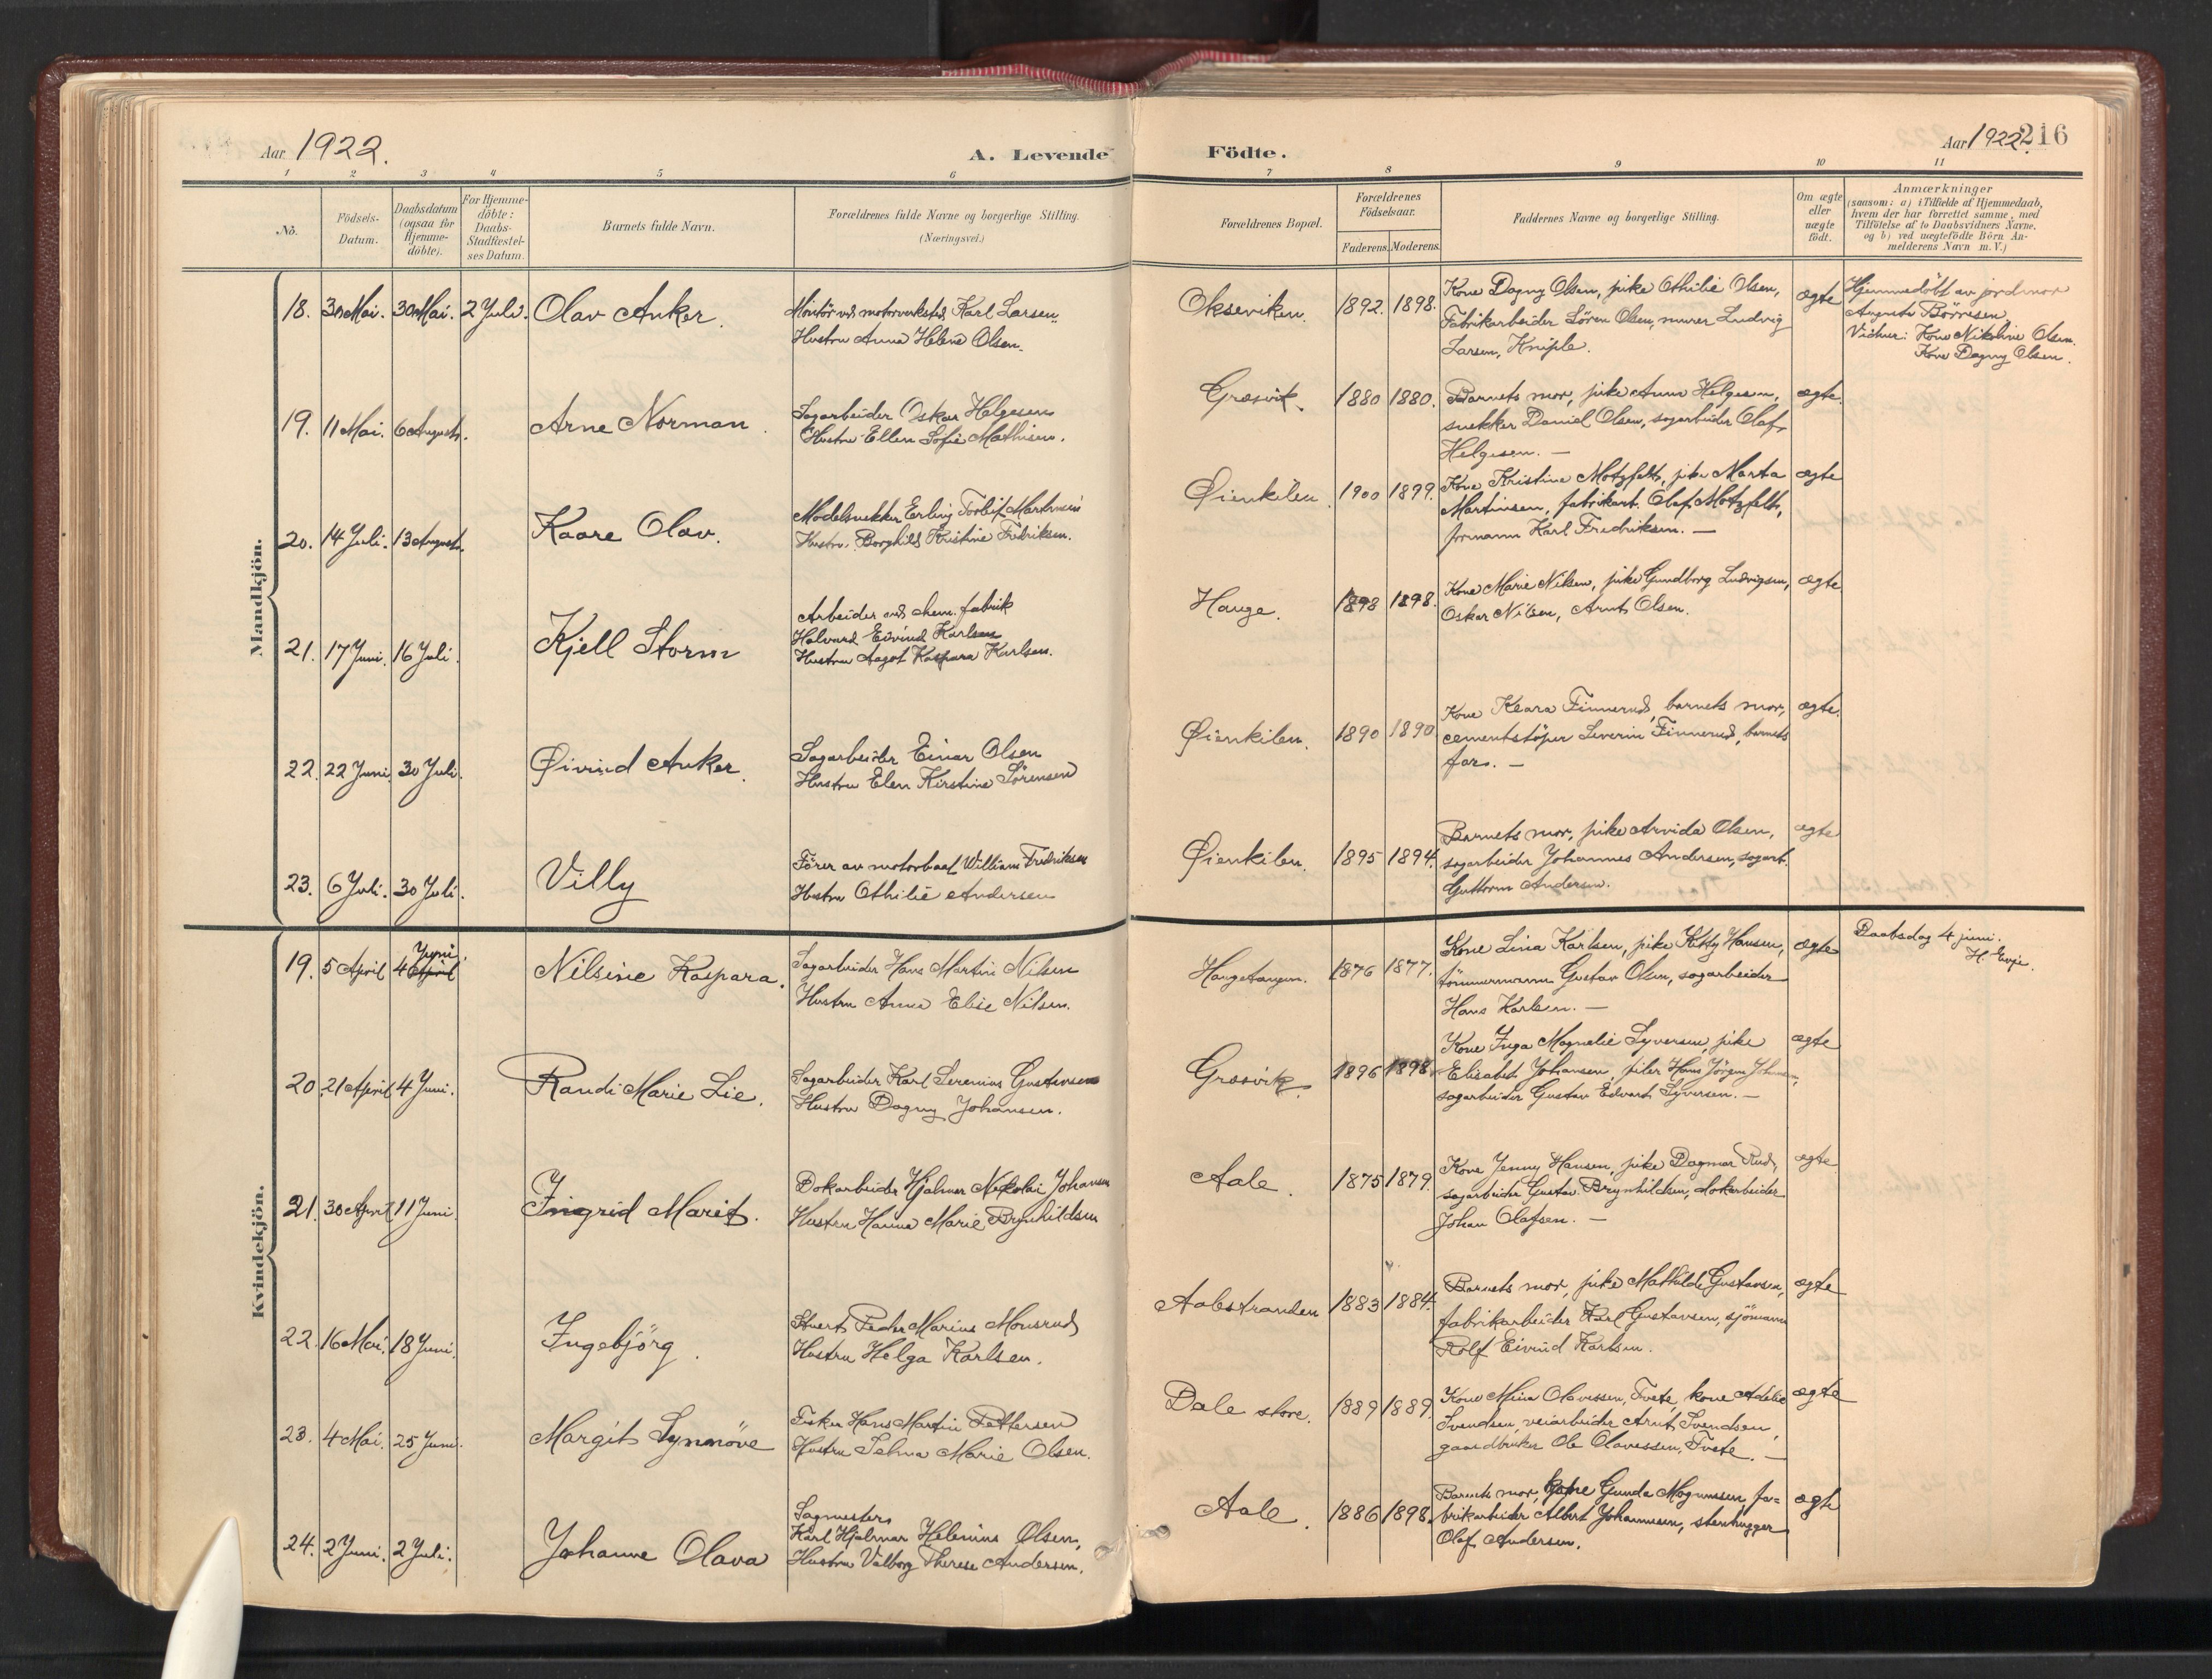 Aar 1922.
A. Levende
1 2 3 4 5 6
No.
Födsels-
Datum.
Daabsdatum
(ogsaa for
Hjemme-
döbte).
For Hjemme-
döbte:
Daabs-
Stadfæstel-
ses Datum.
Barnets fulde Navn.
Forældrenes fulde Navne og borgerlige Stilling.
(Næringsvei.)
Mandkjön.
18. 30 Mai. 30 Mai. 2 Juli. Olav Anker.
Montör ved motorverksted Karl Larsen.
Hustru Anna Helene Olsen.
19. 11 Mai. 6 August. Arne Norman.
Sagarbeider Oskar Helgesen
Hustru Ellen Sofie Mathisen.
20. 14 Juli. 13 August. Kaare Olav.
Modelsnekker Erling Torleif Martinsen
Hustru Borghild Kristine Fredriksen.
21. 17 Juni. 16 Juli. Kjell Storm
Arbeider ved chem. fabrik
Halvard Eivind Karlsen
Hustru Aagot Kaspara Karlsen.
22. 22 Juni 30 Juli. Øivind Anker.
Sagarbeider Einar Olsen
Hustru Elen Kirstine Sörensen
23. 6 Juli. 30 Juli. Villy
Förer av motorbaat William Fredriksen
Hustru Othilie Andersen
Kvindekjön.
19. 5 April 4 April Juni. Nilsine Kaspara.
Sagarbeider Hans Martin Nilsen
Hustru Anna Elise Nilsen.
20. 21 April 4 Juni. Randi Marie Lie.
Sagarbeider Karl Serenius Gustavsen
Hustru Dagny Johansen.
21. 30 April 11 Juni. Ingrid Marit.
Dokarbeider Hjalmar Nikolai Johansen
Hustru Hanna Marie Brynhildsen
22. 16 Mai. 18 Juni. Ingebjörg.
Stuert Peder Marius Monsrud
Hustru Helga Karlsen.
23. 4 Mai. 25 Juni. Margit Synnöve
Fisker Hans Martin Pettersen
Hustru Selma Marie Olsen.
24. 2 Juni. 2 Juli. Johanne Olava
Sagmester
Karl Hjalmar Helenius Olsen,
Hustru Valborg Therese Andersen.
Födte.
Aar 1922. 216
7 8 9 10 11
Forældrenes Bopæl.
Forældrenes
Födselsaar.
Faderens. Moderens.
Faddernes Navne og borgerlige Stilling.
Om ægte
eller
uægte
födt.
Anmærkninger
(saasom: a) i Tilfælde af Hjemmedaab,
hvem der har forrettet samme, med
Tilföielse af to Daabsvidners Navne,
og b) ved uægtefödte Börn An-
melderens Navn m. V.)
Okseviken. 1892. 1898.
Kone Dagny Olsen, pike Othilie Olsen,
Fabrikarbeider Sören Olsen, murer Ludvig
Larsen, Kniple.
ægte
Hjemmedöbt av jordmor
Augusta Börresen.
Vidner: Kone Nikoline Olsen.
Kone Dagny Olsen.
Græsvik. 1880 1880.
Barnets mor, pike Anna Helgesen,
snekker Daniel Olsen, sagarbeider Olaf
Helgesen. —
ægte.
Øienkilen. 1900 1899.
Kone Kristine Motzfeldt, pike Marta
Martinsen, fabrikarb. Olaf Motzfeldt,
formann Karl Fredriksen. —
ægte
Hauge. 1898 1898.
Kone Marie Nilsen, pike Gundborg Ludvigsen,
Oskar Nilsen, Arnt Olsen.
ægte
Øienkilen. 1890 1890
Kone Klara Finnerud, barnets mor,
cementstöper Severin Finnerud, barnets
far. —
ægte.
Øienkilen. 1895 1894.
Barnets mor, pike Arvida Olsen,
sagarbeider Johannes Andersen, sagarb.
Guttorm Andersen.
ægte
Haugetangen. 1876 1877.
Kone Lina Karlsen, pike Kitty Hansen,
tömmermann Gustav Olsen, sagarbeider
Hans Karlsen. —
ægte
Daabsdag 4 juni.
H. Evje.
Græsvik. 1896 1898
Kone Inga Magnelie Syversen, pike
Elisabet Johansen, piler Hans Jörgen Johansen,
sagarbeider Gustav Edvard Syversen. —
ægte
Aale. 1875 1879.
Kone Jenny Hansen, pike Dagmar Rud,
sagarbeider Gustav Brynhildsen, dokarbeider
Johan Olafsen. —
ægte
Aalestranden 1883 1884.
Barnets mor, pike Mathilde Gustavsen,
fabrikarbeider Karl Gustavsen, sjömann
Rolf Eivind Karlsen.
ægte
Dale store. 1889 1889.
Kone Mina Olavessen, Tvete, kone Adelie
Svendsen, veiarbeider Arnt Svendsen,
gaardbruker Ole Olavessen, Tvete. —
ægte
Aale. 1886 1898.
Barnets mor, kone Gunda Magnussen, fa=
brikarbeider Albert Johannessen, stenhugger
Olaf Andersen.
ægte